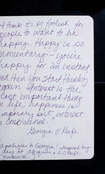 I think it's so foolish for
people to want to be
happy. Happy is so
momentary—you're
happy for an instant
and then you start thinking
again. Interest is the
most important thing
in life; happiness is
temporary, but interest
is continuous.
Georgia O'Keeffe